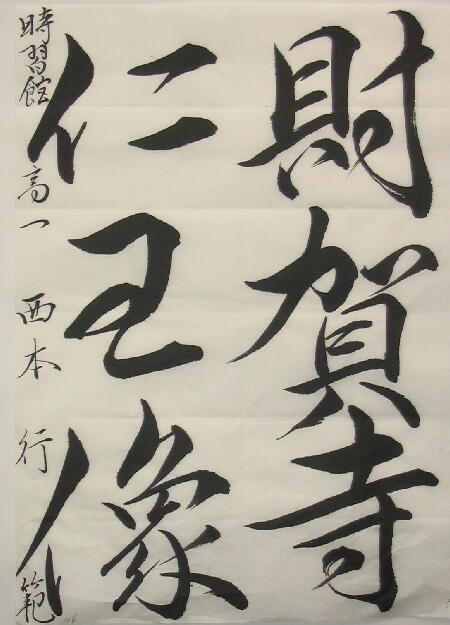 財賀寺
仁王像
時習館 高一 西本 行範